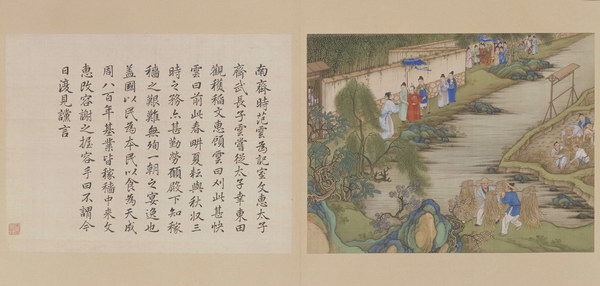 南齊時范雲為記室文惠太子
齊武長子雲嘗從太子幸東田
觀穫稻文惠顧雲曰刈此甚快
雲曰前此春畊夏耘與秋收三
時之務亦甚勤勞願殿下知稼
穡之艱難無殉一朝之宴逸也
蓋國以民為本民以食為天成
周八百年基業皆稼穡中來文
惠改容謝之握容手曰不謂今
日復見讜言